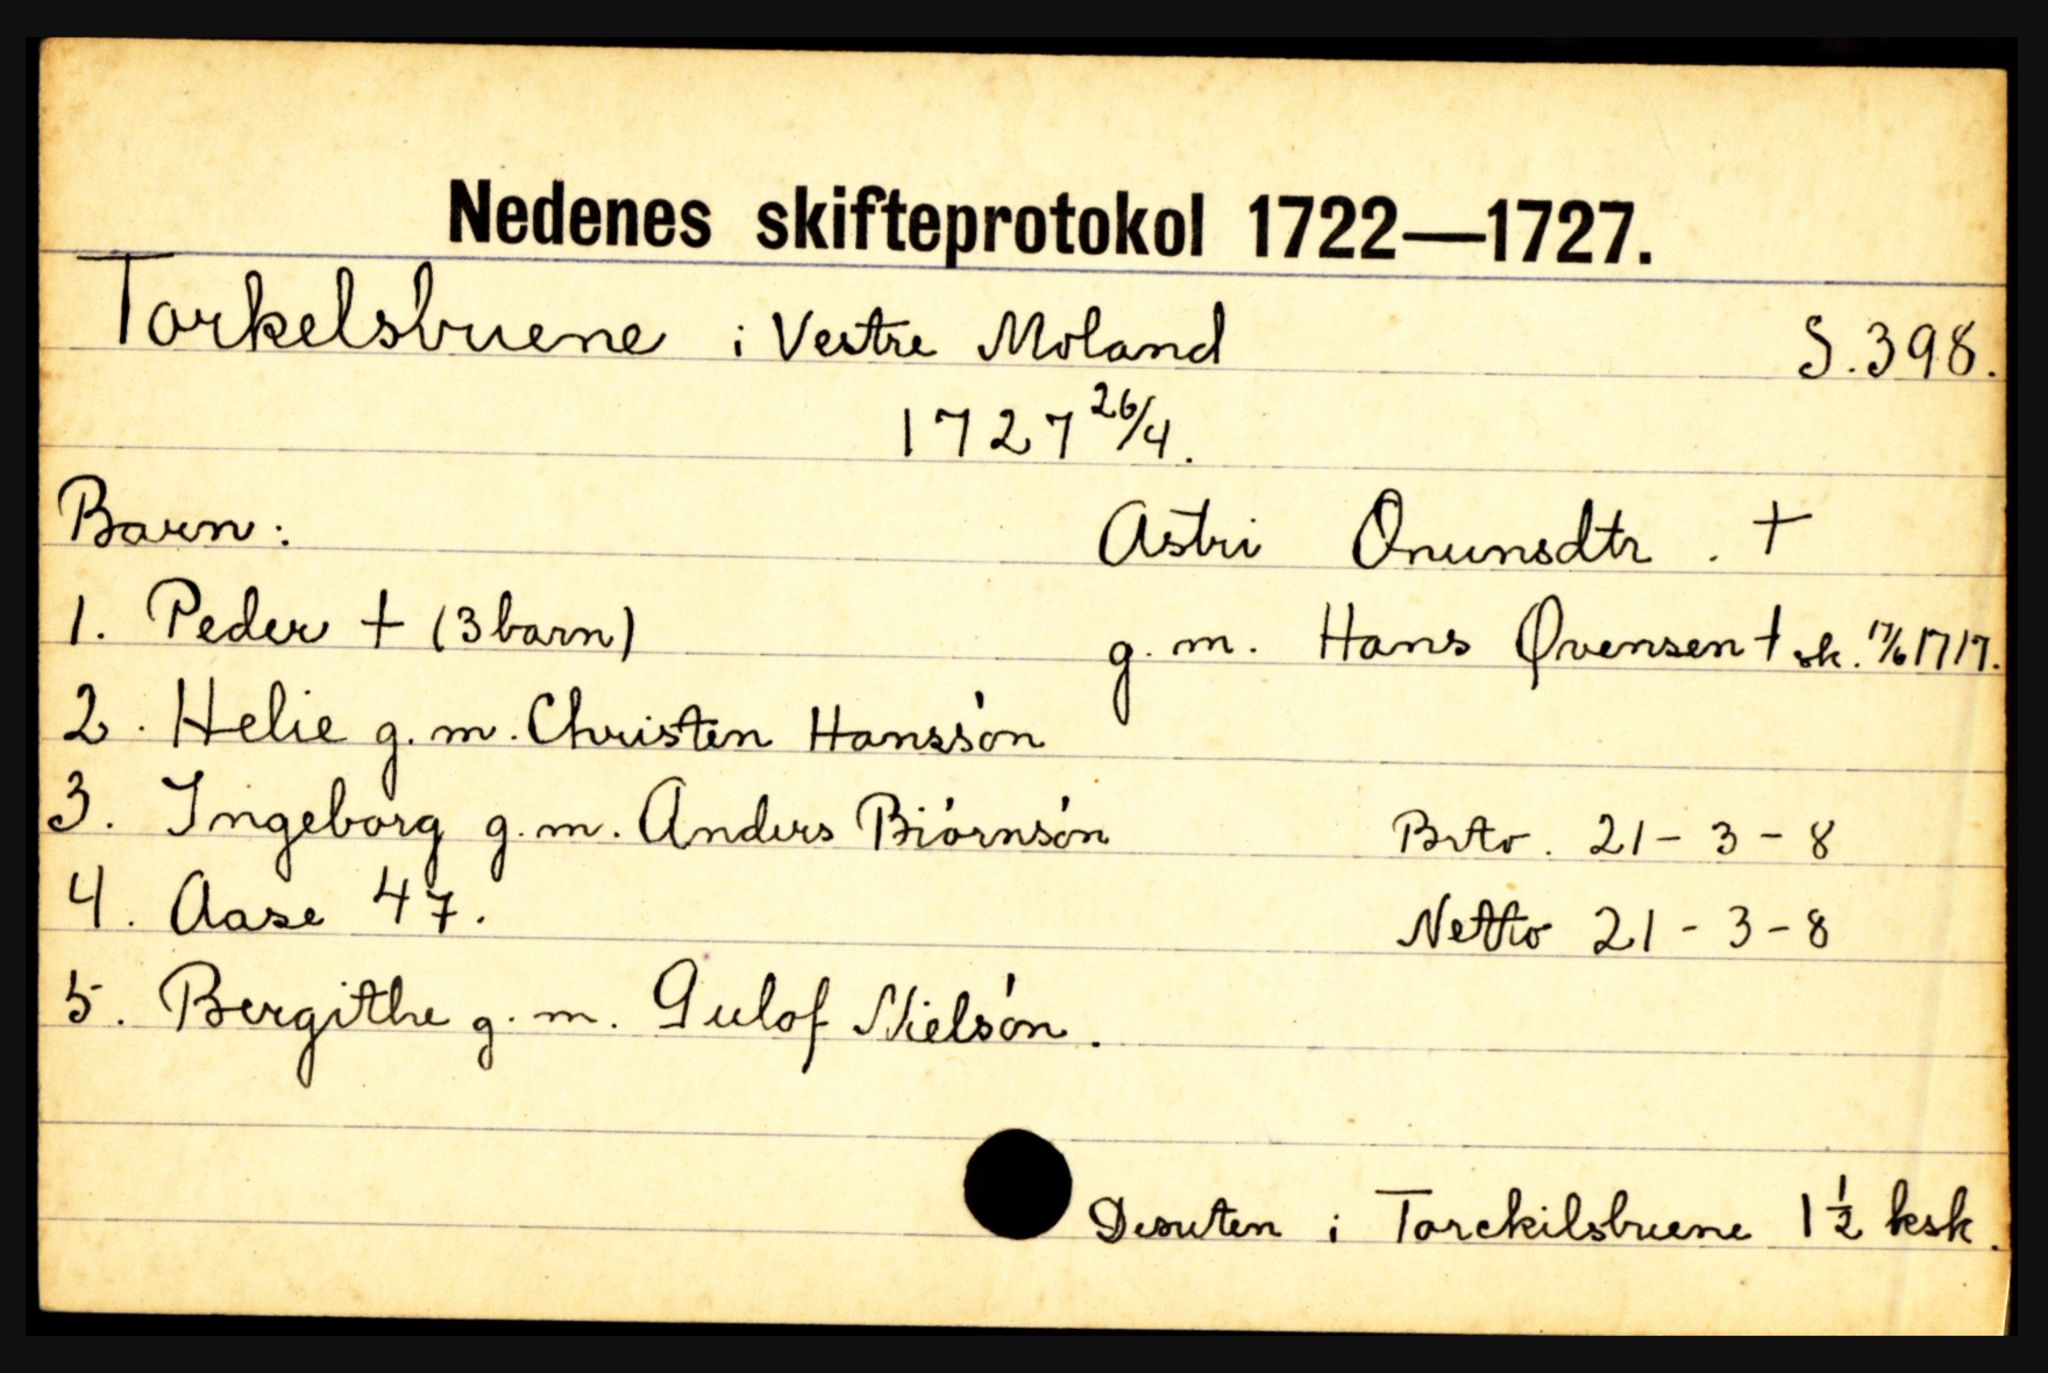 Nedenes skifteprotokol 1722—1727.
Torkelsbuene i Vestre Moland S. 398.
1727 26/4.
Barn: Astri Onunsdtr. +
1. Peder + (3 barn) g. m. Hans Øvensen + sk. 17/6 1717.
2. Helie g. m. Christen Hanssón
3. Ingeborg g. m. Anders Biórnsón Btto. 21 - 3 - 8
4. Aase 47. Netto 21 - 3 - 8
5. Bergithe g. m. Gulof Nielsón.
Desuten i Torckilsbuene 1 1/2 ksk.